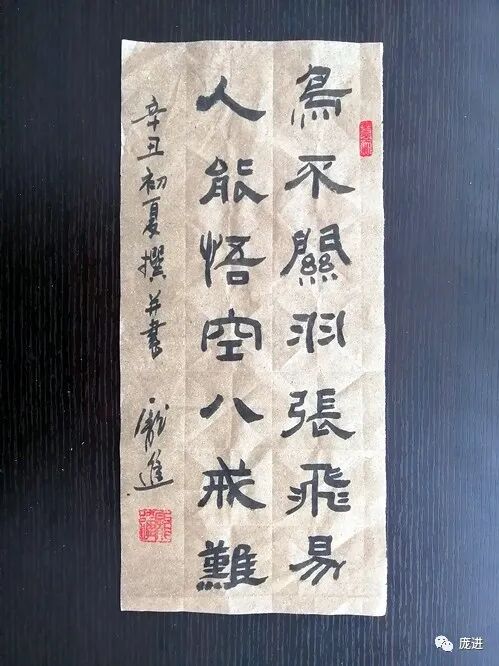 鳥不關羽張飛易
人能悟空八戒難
辛丑初夏撰并書
龐進
庞进